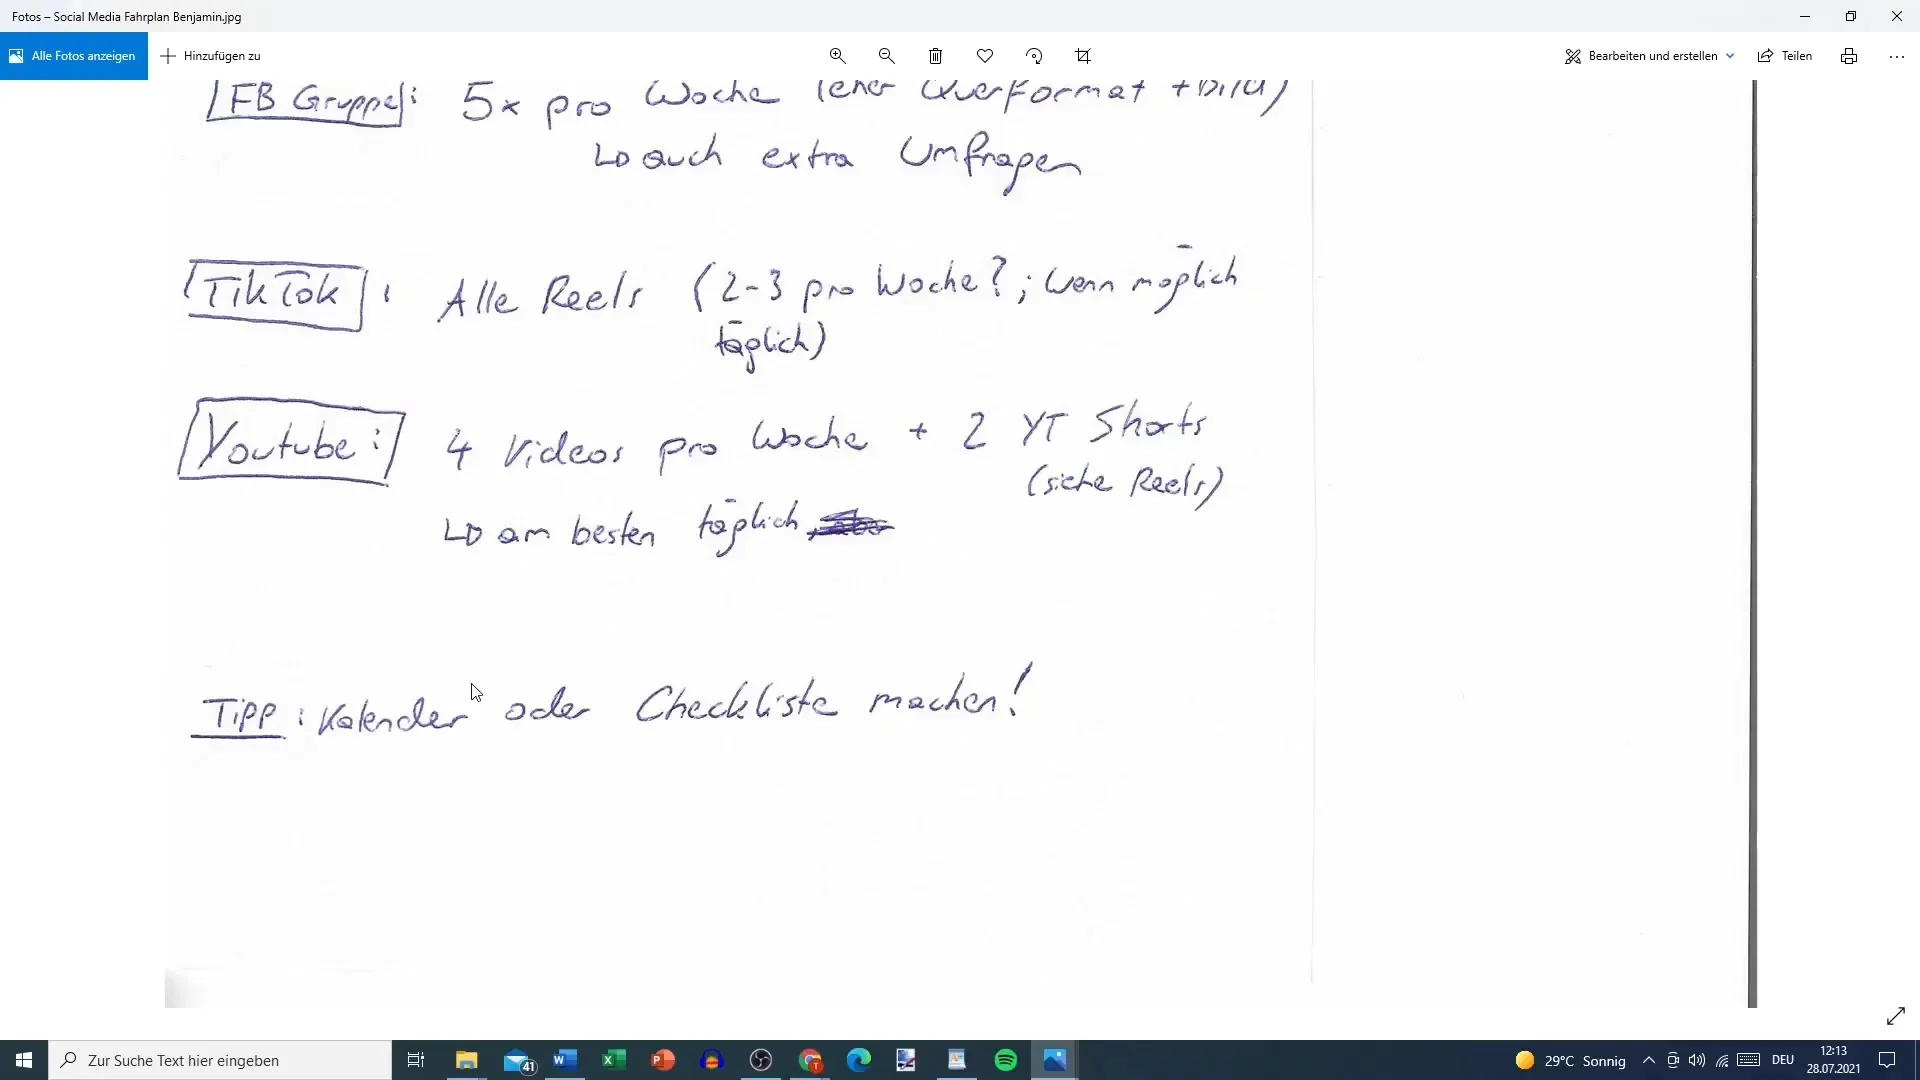 Fotos – Social Media Fahrplan Benjamin.jpg
Alle Fotos anzeigen
Hinzufügen zu
Bearbeiten und erstellen
Teilen
FB Gruppe: 5x pro Woche (eher Querformat + Bild)
auch extra Umfragen
TikTok: Alle Reels (2-3 pro Woche?; wenn möglich
täglich)
Youtube: 4 Videos pro Woche + 2 YT Shorts
(siehe Reels)
am besten täglich
Tipp: Kalender oder Checkliste machen!
Zur Suche Text hier eingeben
41
29°C Sonnig
DEU
12:13
28.07.2021